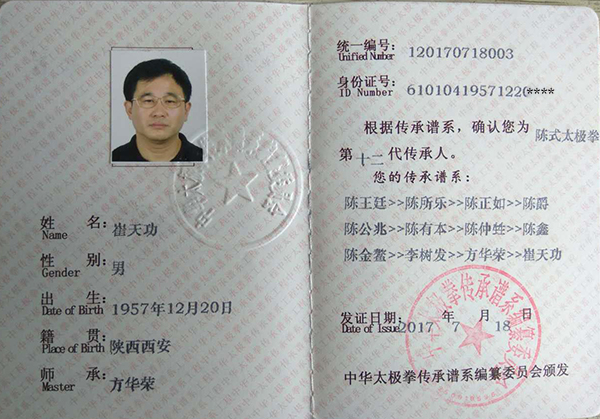 姓 名: 崔天功
Name
性 别: 男
Gender
出 生: 1957年12月20日
Date of Birth
籍 贯: 陕西西安
Place of Birth
师 承: 方华荣
Master
统一编号: 120170718003
Unified Number
身份证号: 61010419571220****
ID Number
根据传承谱系，确认您为 陈式太极拳
第 十二 代传承人。
您的传承谱系:
陈王廷>>陈所乐>>陈正如>>陈爵
陈公兆>>陈有本>>陈仲甡>>陈鑫
陈金鳌>>李树发>>方华荣>>崔天功
发证日期: 2017 年 7 月 18 日
Date of Issue
中华太极拳传承谱系编纂委员会
中华太极拳传承谱系编纂委员会颁发